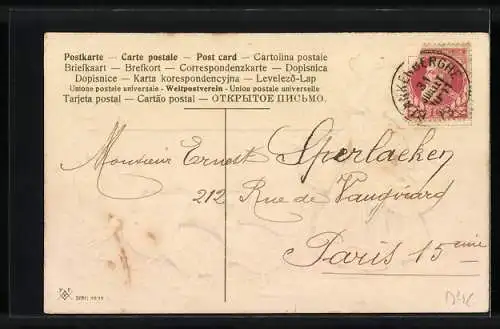 Postkarte — Carte postale — Post card — Cartolina postale
Briefkaart — Brefkort — Correspondenzkarte — Dopisnica
Dopisnice — Karta korespondencyjna — Levelező-Lap
Unione postale universale - Weltpostverein - Union postale universelle
Tarjeta postal — Cartão postal — ОТКРЫТОЕ ПИСЬМО.
Monsieur Ernest Sperlaeken
212 Rue de Vaugirard
Paris 15 ème